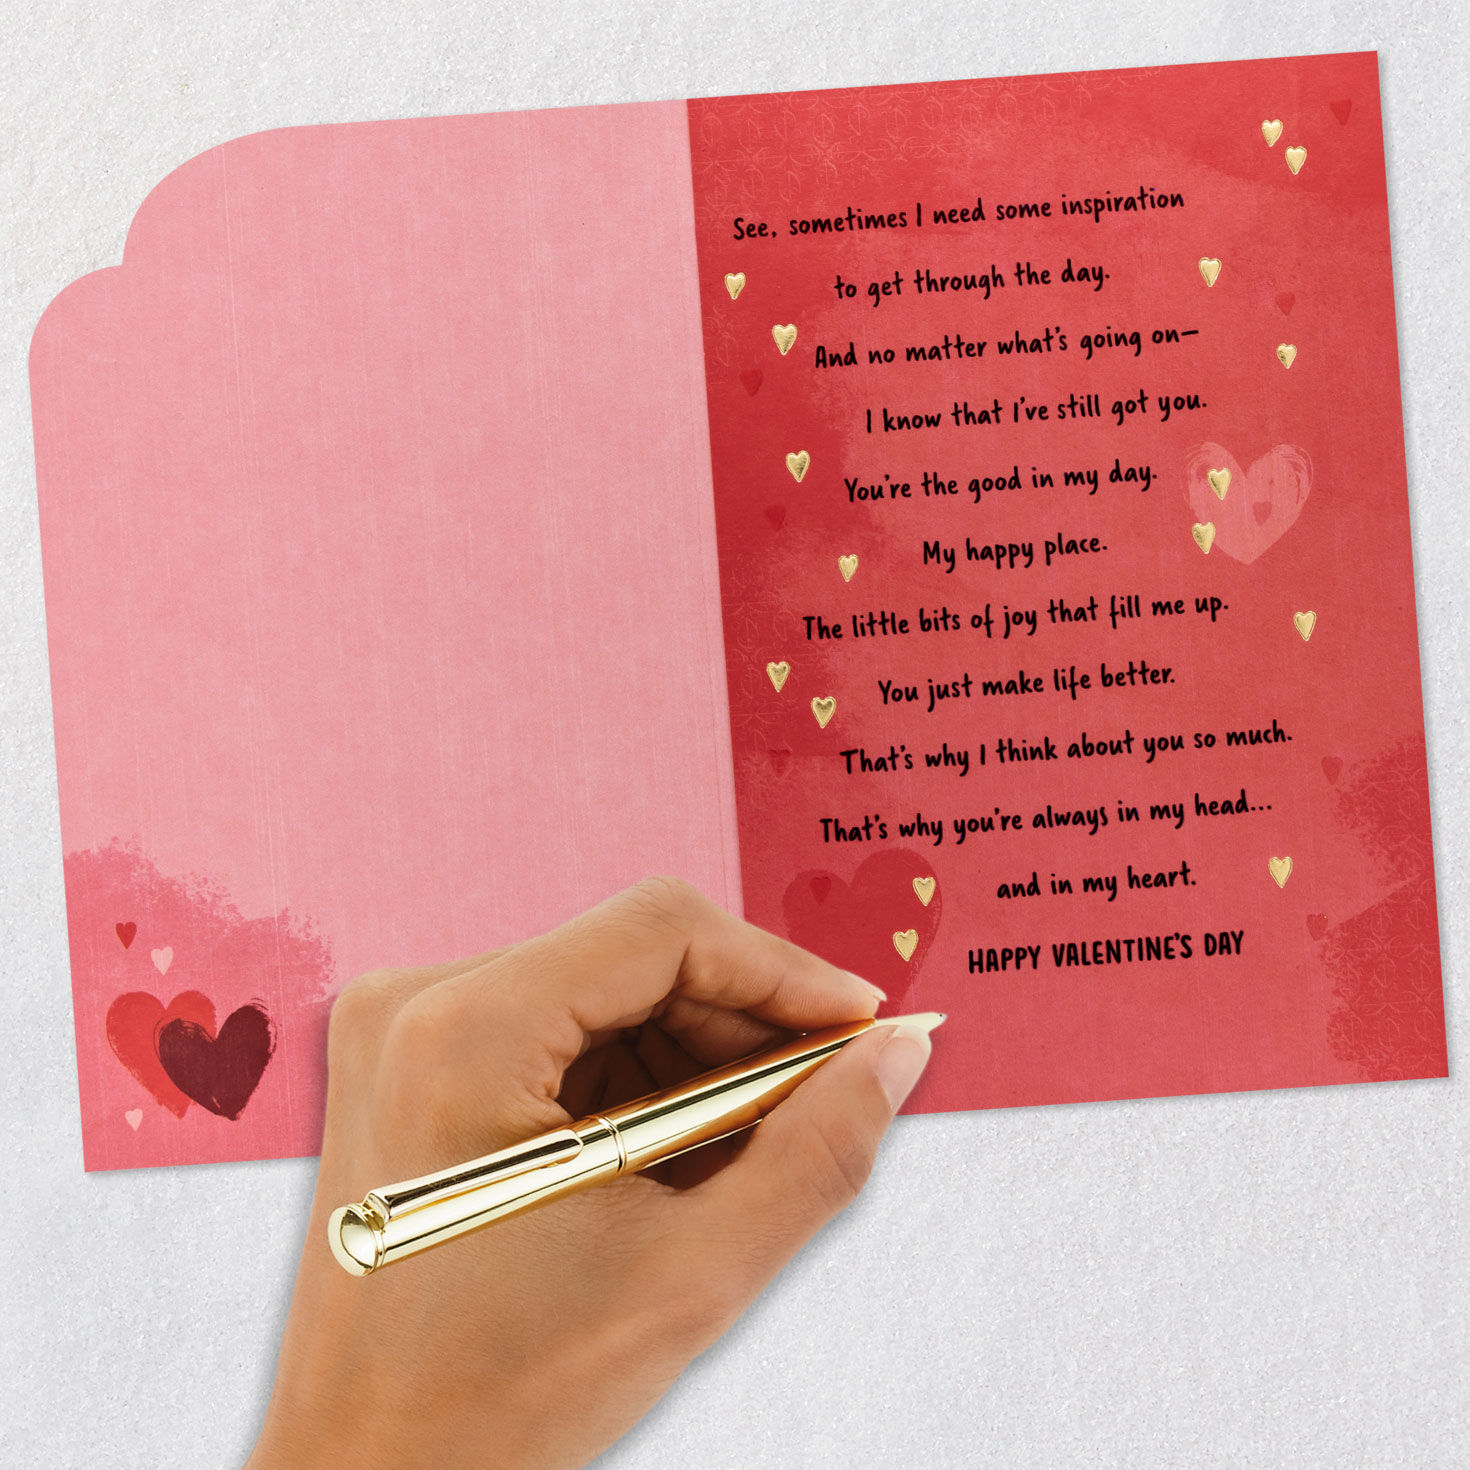 See, sometimes I need some inspiration
to get through the day.
And no matter what's going on—
I know that I've still got you.
You're the good in my day.
My happy place.
The little bits of joy that fill me up.
You just make life better.
That's why I think about you so much.
That's why you're always in my head...
and in my heart.
HAPPY VALENTINE'S DAY